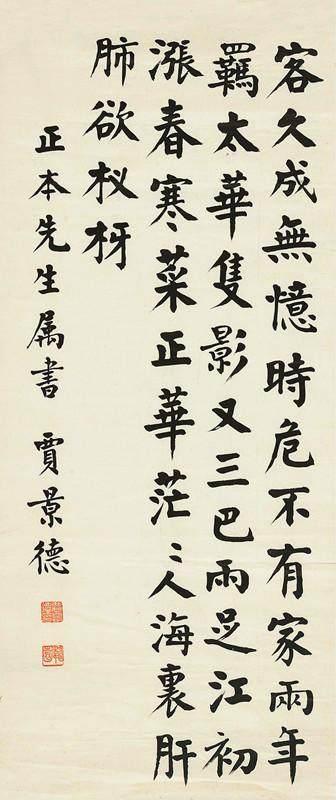 客久成無憶時危不有家兩年
羈太華隻影又三巴雨足江初
漲春寒菜正華茫〻人海裏肝
肺欲杈枒
正本先生属書 賈景德